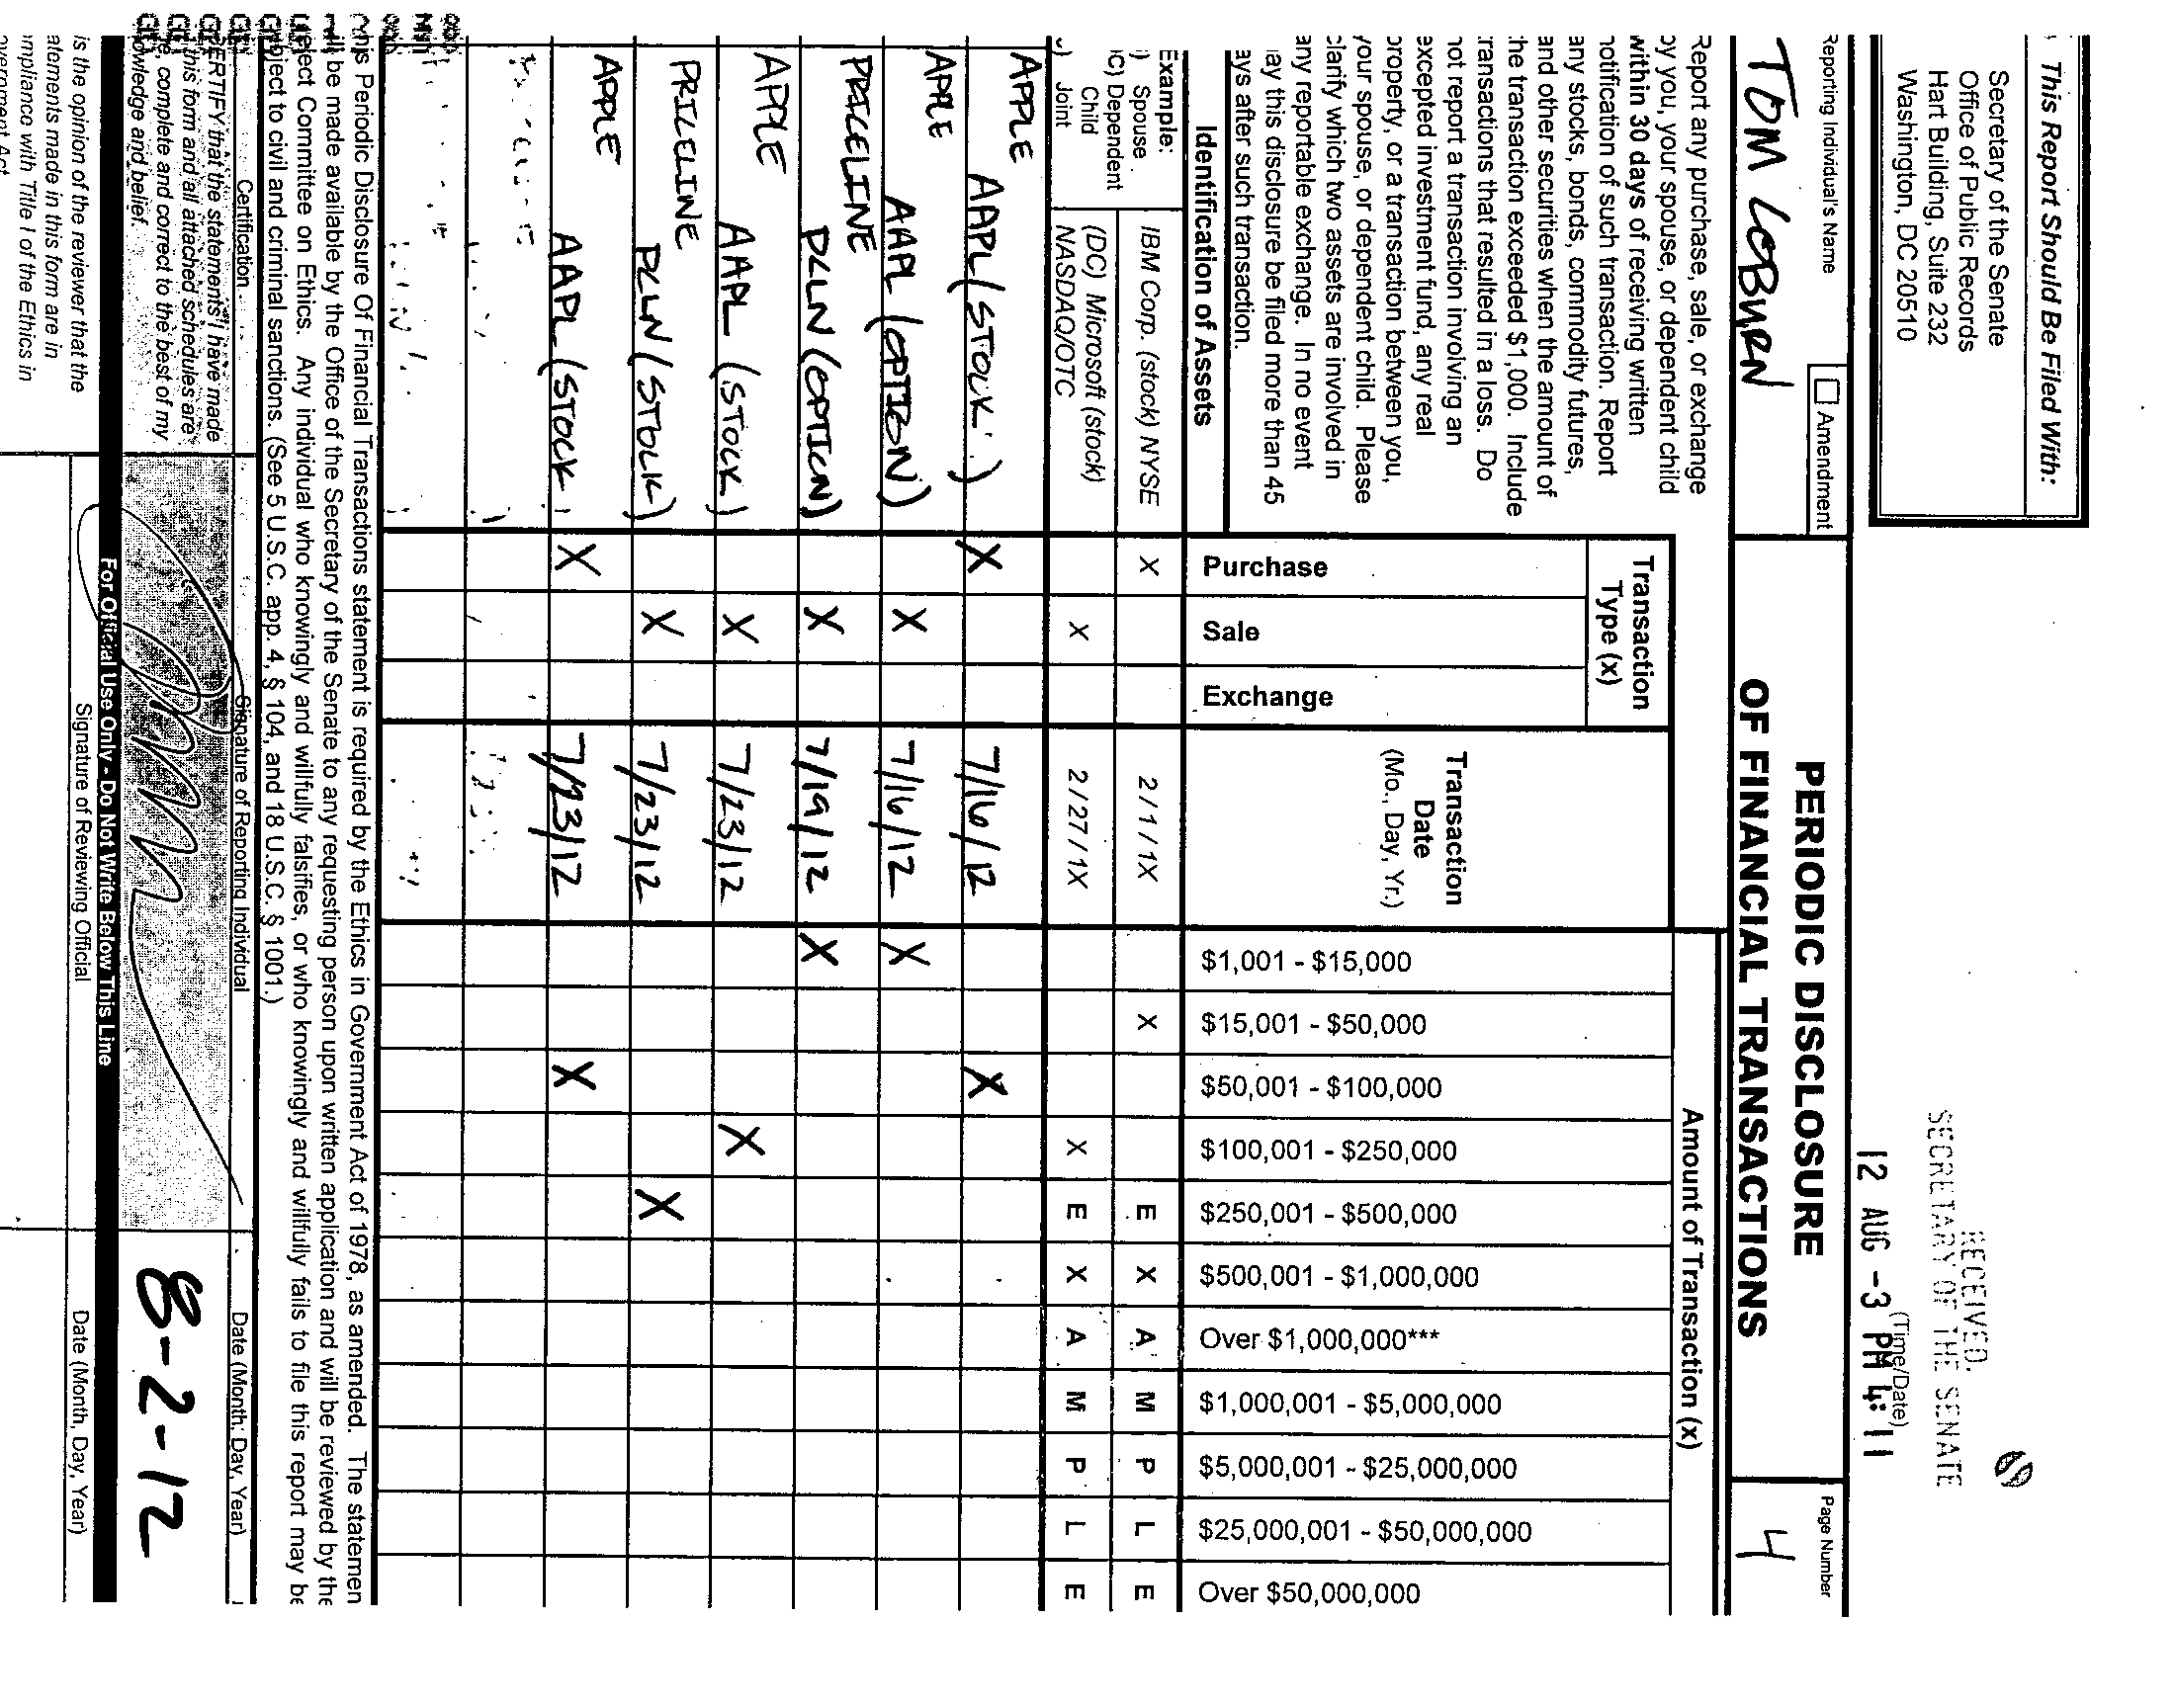 This Report Should Be Filed With:
Secretary of the Senate
Office of Public Records
Hart Building, Suite 232
Washington, DC 20510
RECEIVED
SECRETARY OF THE SENATE
(Time/Date)
12 AUG -3 PM 4:11
Reporting Individual's Name
TOM COBURN
Amendment
PERIODIC DISCLOSURE
OF FINANCIAL TRANSACTIONS
Page Number
4
Report any purchase, sale, or exchange
by you, your spouse, or dependent child
within 30 days of receiving written
notification of such transaction. Report
any stocks, bonds, commodity futures,
and other securities when the amount of
the transaction exceeded $1,000. Include
transactions that resulted in a loss. Do
not report a transaction involving an
excepted investment fund, any real
property, or a transaction between you,
your spouse, or dependent child. Please
clarify which two assets are involved in
any reportable exchange. In no event
may this disclosure be filed more than 45
days after such transaction.
Identification of Assets
Transaction
Type (x)
Purchase
Sale
Exchange
Transaction
Date
(Mo., Day, Yr.)
Amount of Transaction (x)
$1,001 - $15,000
$15,001 - $50,000
$50,001 - $100,000
$100,001 - $250,000
$250,001 - $500,000
$500,001 - $1,000,000
Over $1,000,000***
$1,000,001 - $5,000,000
$5,000,001 - $25,000,000
$25,000,001 - $50,000,000
Over $50,000,000
Example:
) Spouse
C) Dependent
Child
) Joint
IBM Corp. (stock) NYSE X 2 / 1 / 1X X E X A M P L E
(DC) Microsoft (stock)
NASDAQ/OTC X 2 / 27 / 1X X E X A M P L E
APPLE AAPL (STOCK) X 7/16/12 X
APPLE AAPL (OPTION) X 7/16/12 X
PRICELINE PCLN (OPTION) X 7/19/12 X
APPLE AAPL (STOCK) X 7/23/12 X
PRICELINE PCLN (STOCK) X 7/23/12 X
APPLE AAPL (STOCK) X 7/23/12 X
This Periodic Disclosure Of Financial Transactions statement is required by the Ethics in Government Act of 1978, as amended. The statemen
will be made available by the Office of the Secretary of the Senate to any requesting person upon written application and will be reviewed by the
elect Committee on Ethics. Any individual who knowingly and willfully falsifies, or who knowingly and willfully fails to file this report may be
bject to civil and criminal sanctions. (See 5 U.S.C. app. 4, § 104, and 18 U.S.C. § 1001.)
Certification
Signature of Reporting Individual
Date (Month, Day, Year)
CERTIFY that the statements I have made
this form and all attached schedules are
e, complete and correct to the best of my
owledge and belief.
8-2-12
For Official Use Only - Do Not Write Below This Line
is the opinion of the reviewer that the
atements made in this form are in
mpliance with Title I of the Ethics in
overnment Act
Signature of Reviewing Official
Date (Month, Day, Year)